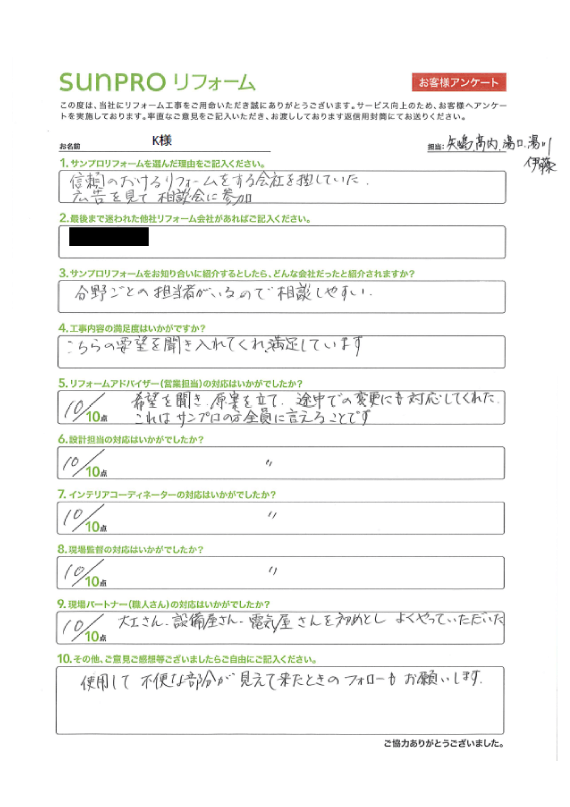 sunPRO リフォーム
お客様アンケート
この度は、当社にリフォーム工事をご用命いただき誠にありがとうございます。サービス向上のため、お客様へアンケー
トを実施しております。率直なご意見をご記入いただき、お渡ししております返信用封筒にてお送りください。
お名前 K様 担当: 矢嶋、高内、湯口、湯川
伊藤
1. サンプロリフォームを選んだ理由をご記入ください。
信頼のおけるリフォームをする会社を探していた.
広告を見て 相談会に参加
2. 最後まで迷われた他社リフォーム会社があればご記入ください。
3. サンプロリフォームをお知り合いに紹介するとしたら、どんな会社だったと紹介されますか?
分野ごとの担当者がいるので相談しやすい.
4. 工事内容の満足度はいかがですか?
こちらの要望を聞き入れてくれ満足しています
5. リフォームアドバイザー(営業担当)の対応はいかがでしたか?
10/10点 希望を聞き、原案を立て、途中での変更にも対応してくれた.
これはサンプロの方全員に言えることです
6. 設計担当の対応はいかがでしたか?
10/10点 〃
7. インテリアコーディネーターの対応はいかがでしたか?
10/10点 〃
8. 現場監督の対応はいかがでしたか?
10/10点 〃
9. 現場パートナー(職人さん)の対応はいかがでしたか?
10/10点 大工さん、設備屋さん、電気屋さんを初めとし よくやっていただいた
10. その他、ご意見ご感想等ございましたらご自由にご記入ください。
使用して 不便な部分が 見えて来たときの フォローも お願いします.
ご協力ありがとうございました。